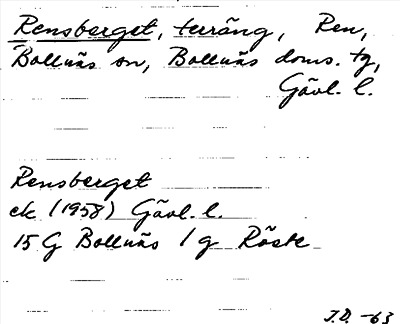 Rensberget, terräng, Ren,
Bollnäs sn, Bollnäs doms. tg,
Gävl. l.
Rensberget
ek (1958) Gävl. l.
15 G Bollnäs 1 g Röste
J.D. -63